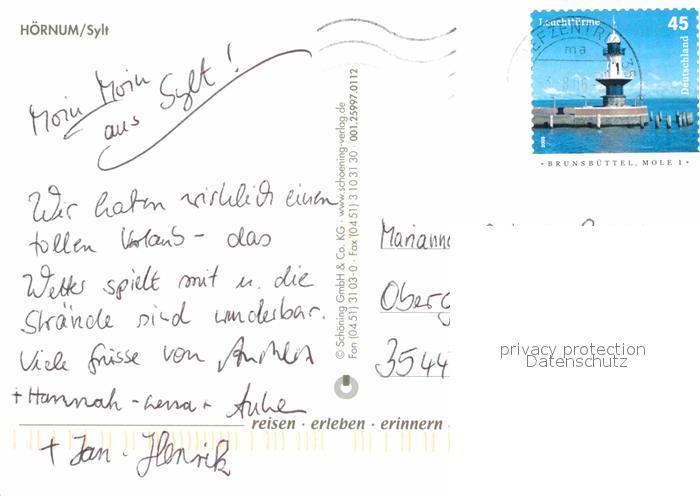 HÖRNUM/Sylt
Moin Moin
aus Sylt!
Wir haben wirklich einen
tollen Urlaub - das
Wetter spielt mit u. die
Strände sind wunderbar.
Viele Grüsse von
+ Hannah - Lena + Anke
+ Jan - Henrik
reisen · erleben · erinnern
© Schöning GmbH & Co. KG · www.schoening-verlag.de
Fon (04 51) 31 03-0 · Fax (04 51) 3 10 31 30 · 001.25997.0112
Leuchttürme 45
Deutschland
BRIEFZENTRUM
ma
· BRUNSBÜTTEL, MOLE 1 ·
Marianne
Oberg
3544
privacy protection
Datenschutz